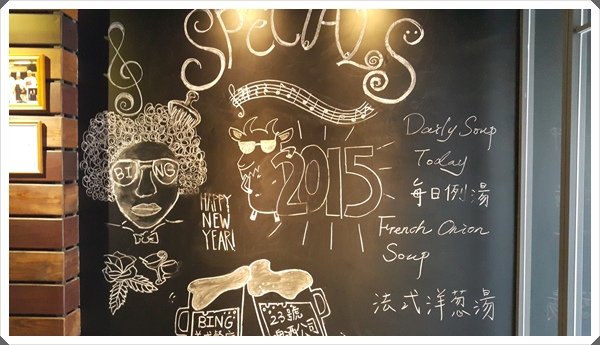 SPECIALS
BING
2015
HAPPY
NEW
YEAR!
Daily Soup
Today
每日例湯
French Onion
Soup
法式洋葱湯
BING
23號
啤酒公司